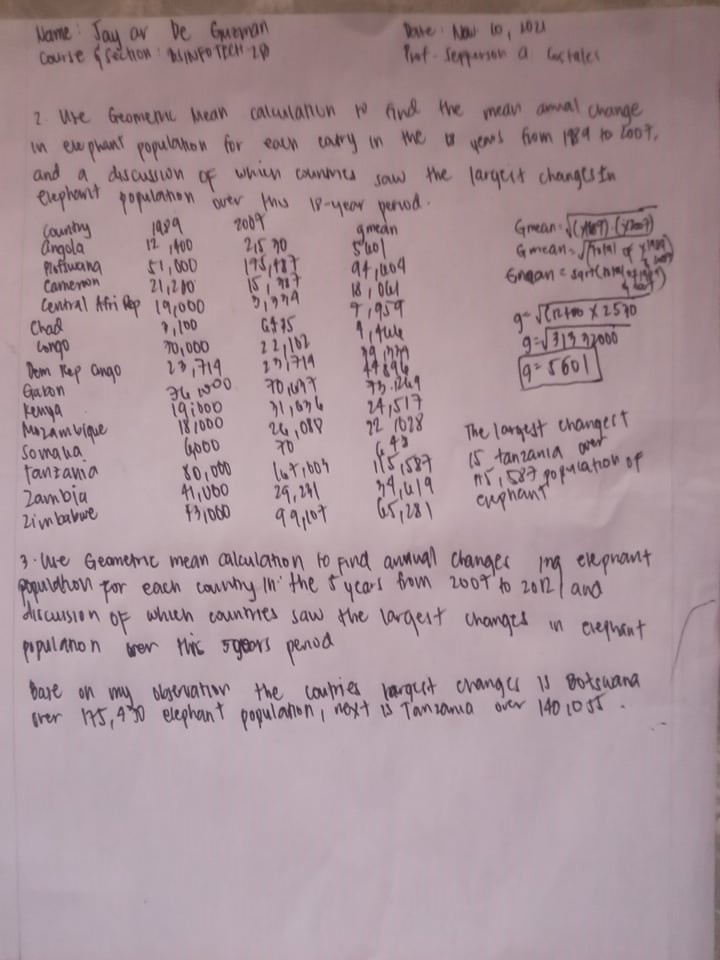 Name: Jay ar De Guzman
Date: Nov 10, 2021
Course & Section: BSINFOTECH-2D
Prof. Jepperson A Costales
2. Use Geometric Mean calculation to find the mean annual change
in elephant population for each in the 18 years from 1989 to 2007,
and a discussion of which countries saw the largest changes In
elephant population over this 18-year period.
Country 1989 2007 gmean
Angola 12,400 2,530
51,000 175,487
Cameroon 21,200 15,387 18,061
Central Afri Rep 19,000 3,334 7,959
Chad 3,100 6435
Congo 70,000 22,102
Dem Rep Congo 23,714 23,714
Gabon 70,637
Kenya 19,000 31,636 24,517
Mozambique 18,000 26,088 22,028
Somalia 6000 70 648
Tanzania 80,000 167,003 115,587
Zambia 41,000 29,231 34,619
Zimbabwe 43,000 99,107 65,281
Gmean=√(x1989).(x2007)
Gmean=√(Total of x1989
Gmean = sqrt(
g=√(12400 x 2530
g=√31372000
g=5601
The largest changest
is tanzania over
115,587 population of
elephant
3. Use Geometric mean calculation to find annual changes ing elephant
population for each country in the 5 years from 2007 to 2012, and
discussion of which countries saw the largest changes in elephant
population over this 5years period
Base on my observation the coutries largest changes is Botswana
over 175,430 elephant population, next is Tanzania over 140,055.